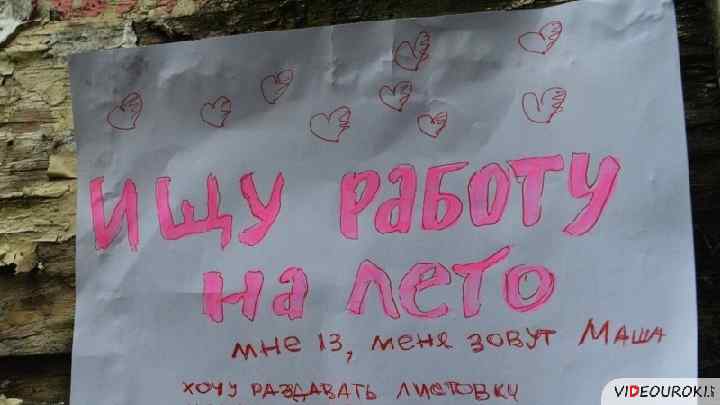 ищу работу
на лето
мне 13, меня зовут Маша
хочу раздавать листовки
VIDEOUROKI